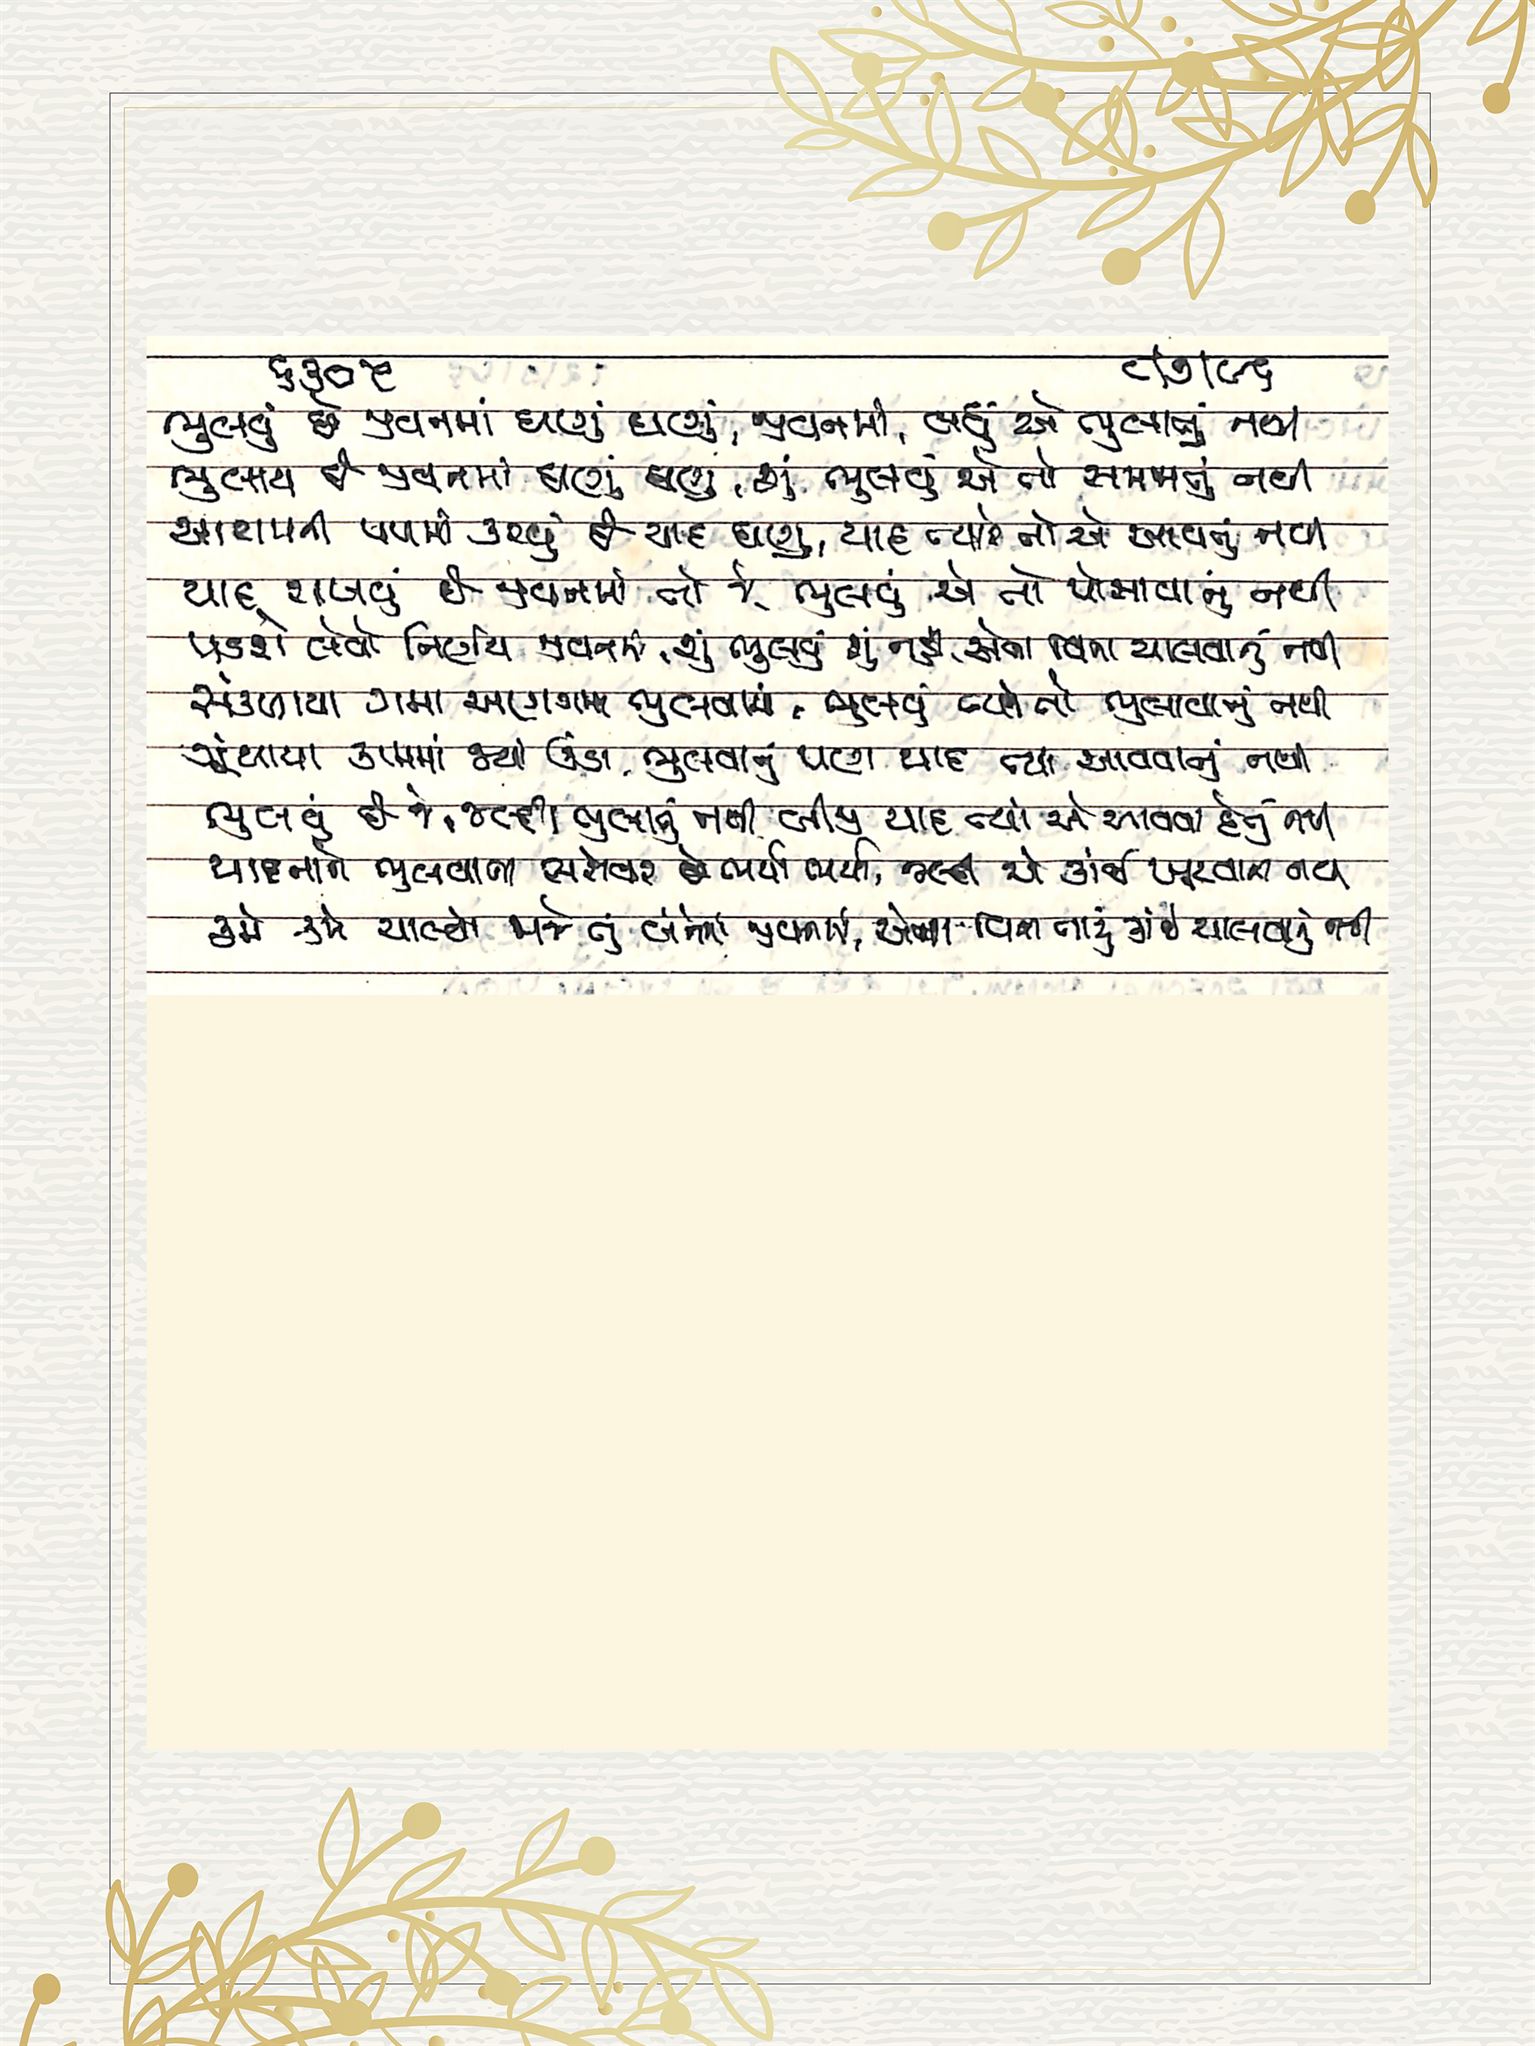 ૬૩૦૯ ૮/૭/૯૬
ભુલવું છે જીવનમાં ઘણું ઘણું, જીવનમાં, બધું એ ભુલાતું નથી
ભુલાય છે જીવનમાં ઘણું ઘણું, શું ભુલવું એ તો સમજાતું નથી
આરામની પળમાં કરવું છે યાદ ઘણું, યાદ ત્યારે તો એ આવતું નથી
યાદ રાખવું છે જીવનમાં તો જે, ભુલવું એ તો પોસાવાનું નથી
પડશે લેવો નિર્ણય જીવનમાં, શું ભુલવું શું નહીં, એના વિના ચાલવાનું નથી
સંકળાયા ગમા અણગમા ભુલવામાં, ભુલવું તો ભુલાવાનું નથી
ગૂંથાયા કામમાં જ્યાં ઊંડા, ભુલવાનું પણ યાદ ત્યાં આવવાનું નથી
ભુલવું છે જે, જલ્દી ભુલાતું નથી બીજી યાદ ત્યાં એ આવવા દેતું નથી
યાદનાને ભુલવાના સરોવર છે ભર્યા ભર્યા, જલ્દી એ કાંઈ નથી
કામે કામે ચાલશે તું બંનેનાં જીવનમાં, એના વિના તારું કાંઈ ચાલવાનું નથી